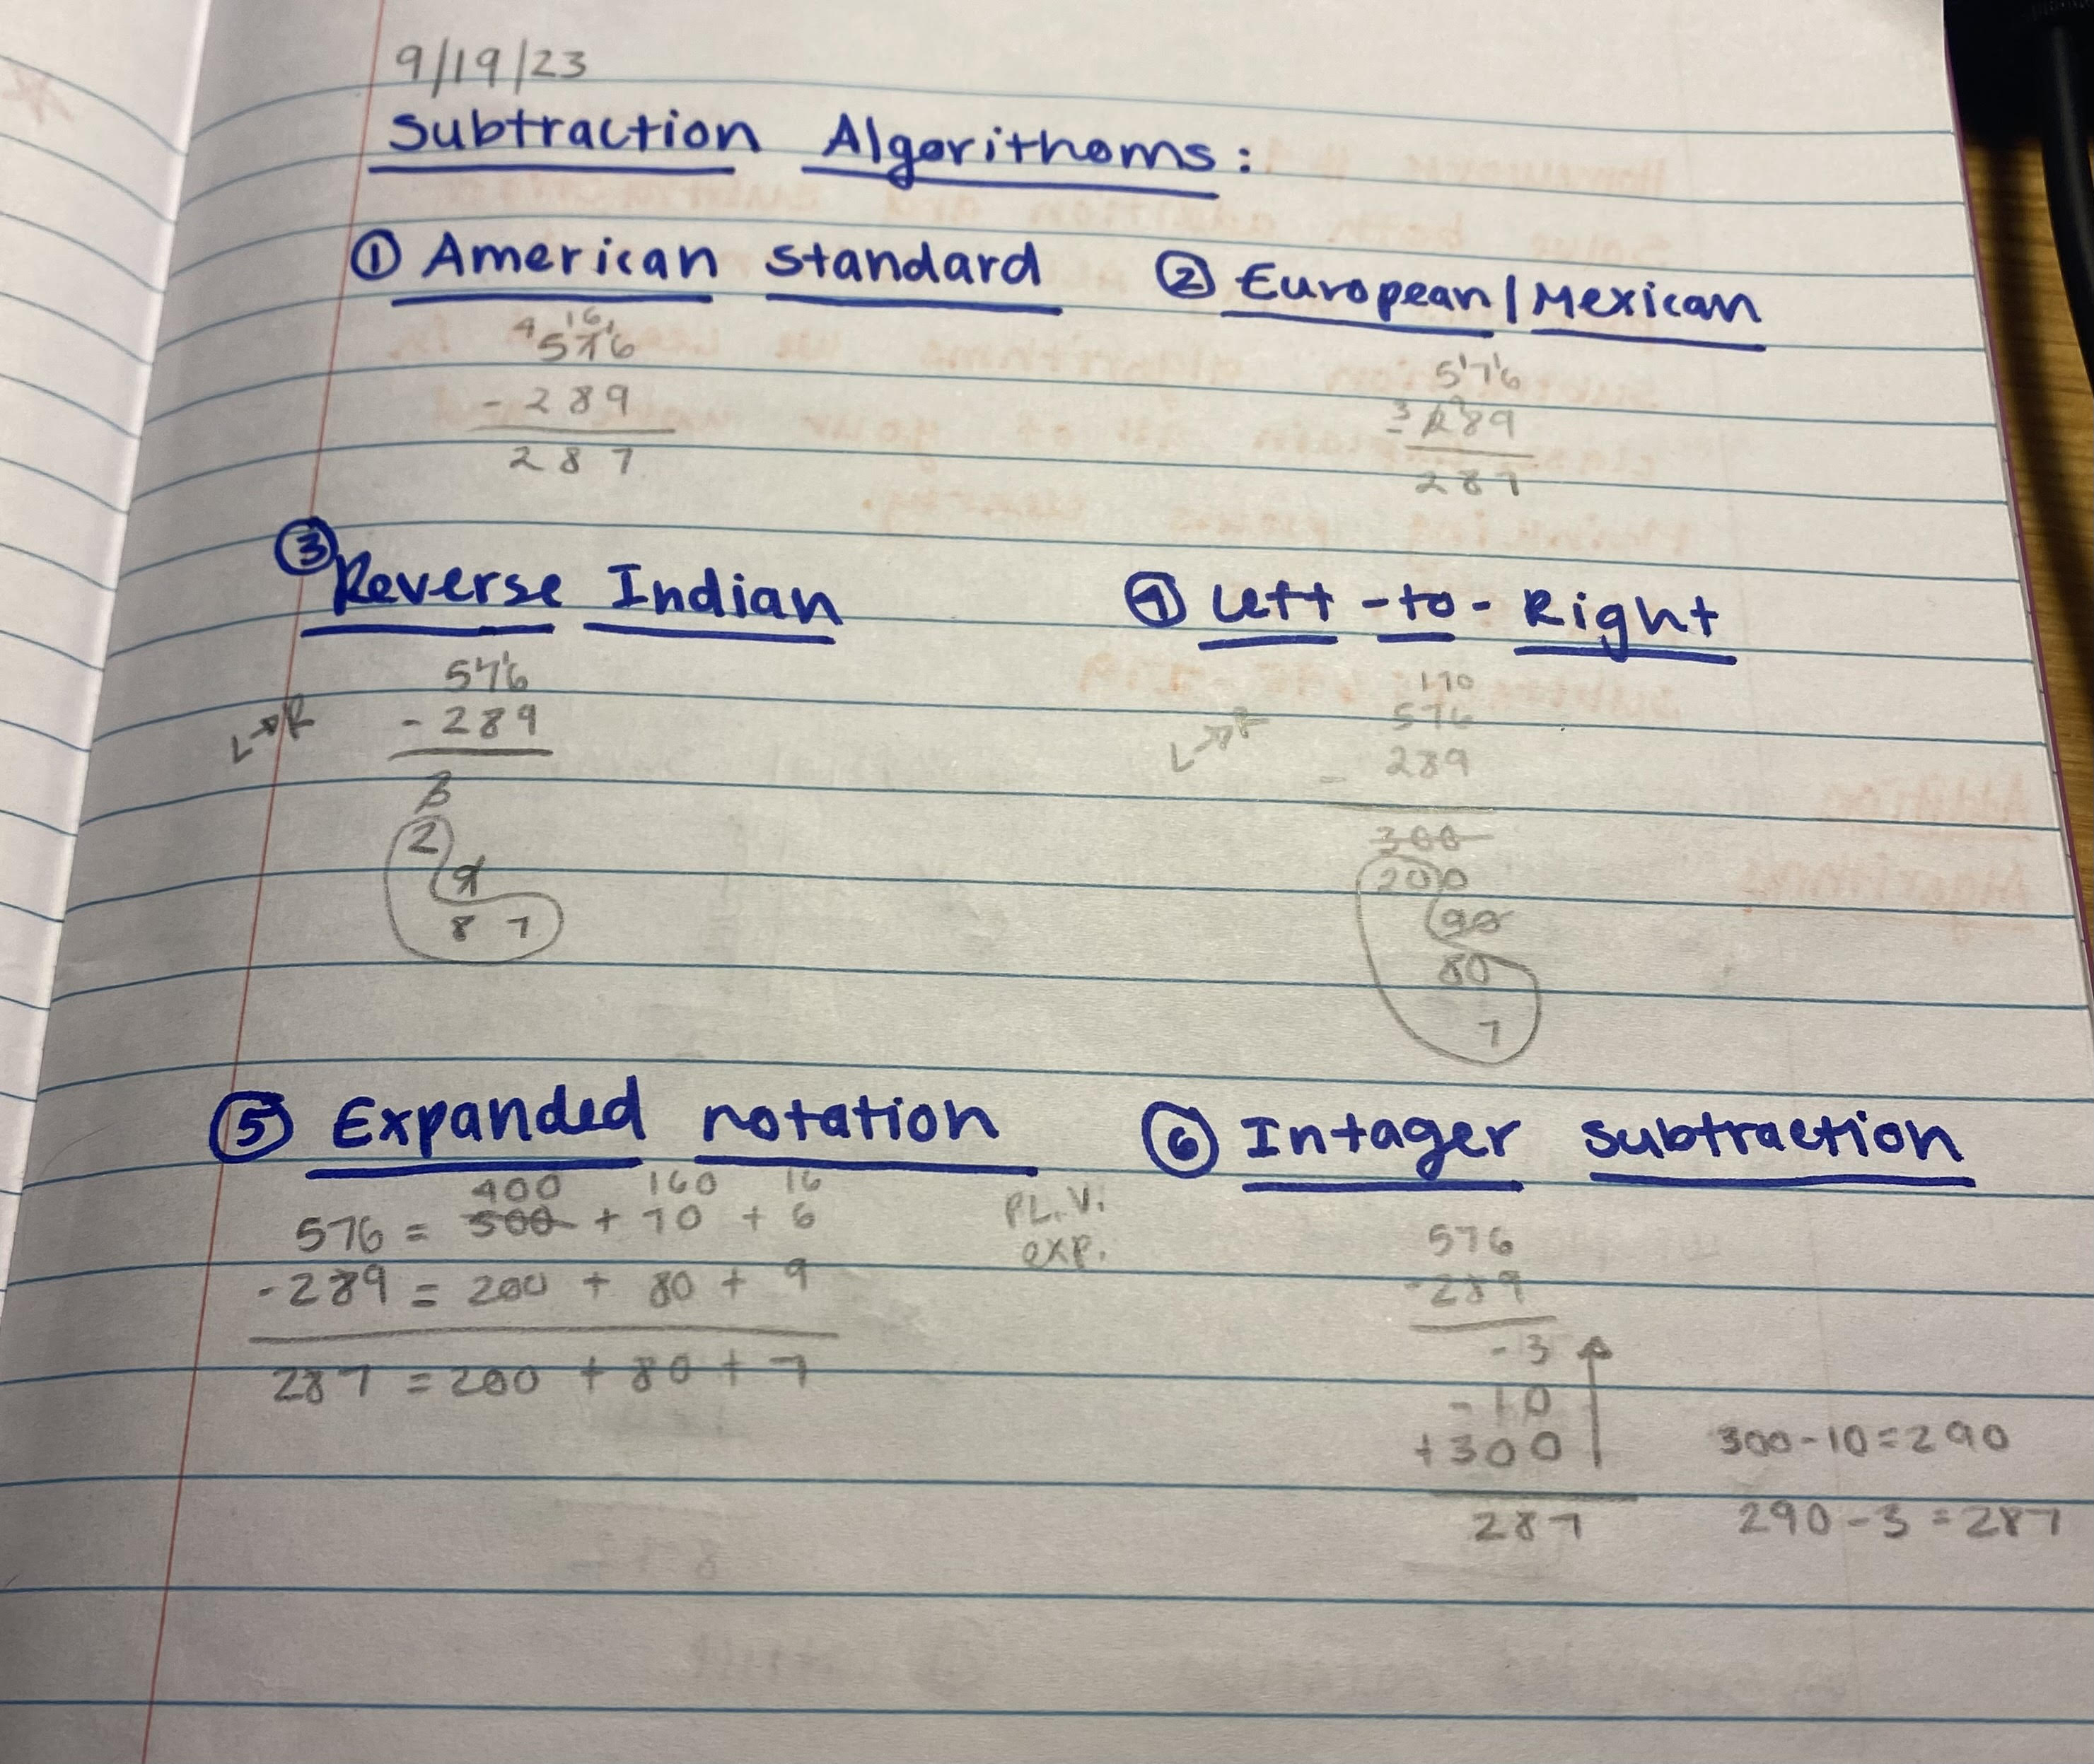 9/19/23
Subtraction Algorithoms:
① American Standard
4 16 1
576
- 289
287
② European/Mexican
5'7'6
3 9
- 289
287
③ Reverse Indian
5'7'6
L→R
- 289
3
2
9
8 7
④ Left-to-Right
170
576
L→R
- 289
300
200
90
80
7
⑤ Expanded notation
400 160 16
576 = 500 + 70 + 6
PL.V.
exp.
-289 = 200 + 80 + 9
287 = 200 + 80 + 7
⑥ Intager subtraction
576
-289
-3
-10
+300
300-10=290
287
290-3=287